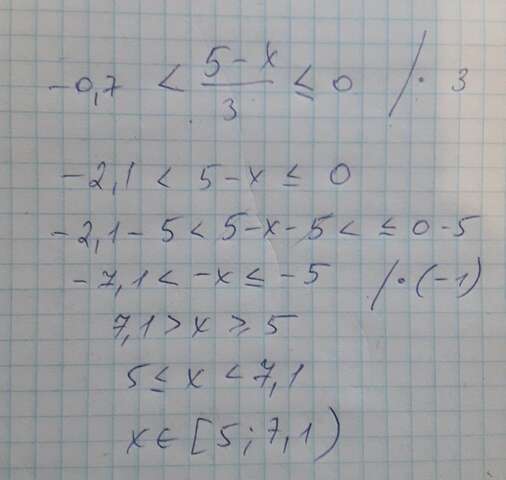 -0,7 < (5-x)/3 ≤ 0 /· 3
-2,1 < 5-x ≤ 0
-2,1-5 < 5-x-5 < ≤ 0-5
-7,1 < -x ≤ -5 /·(-1)
7,1 > x ≥ 5
5 ≤ x < 7,1
x ∈ [5; 7,1)